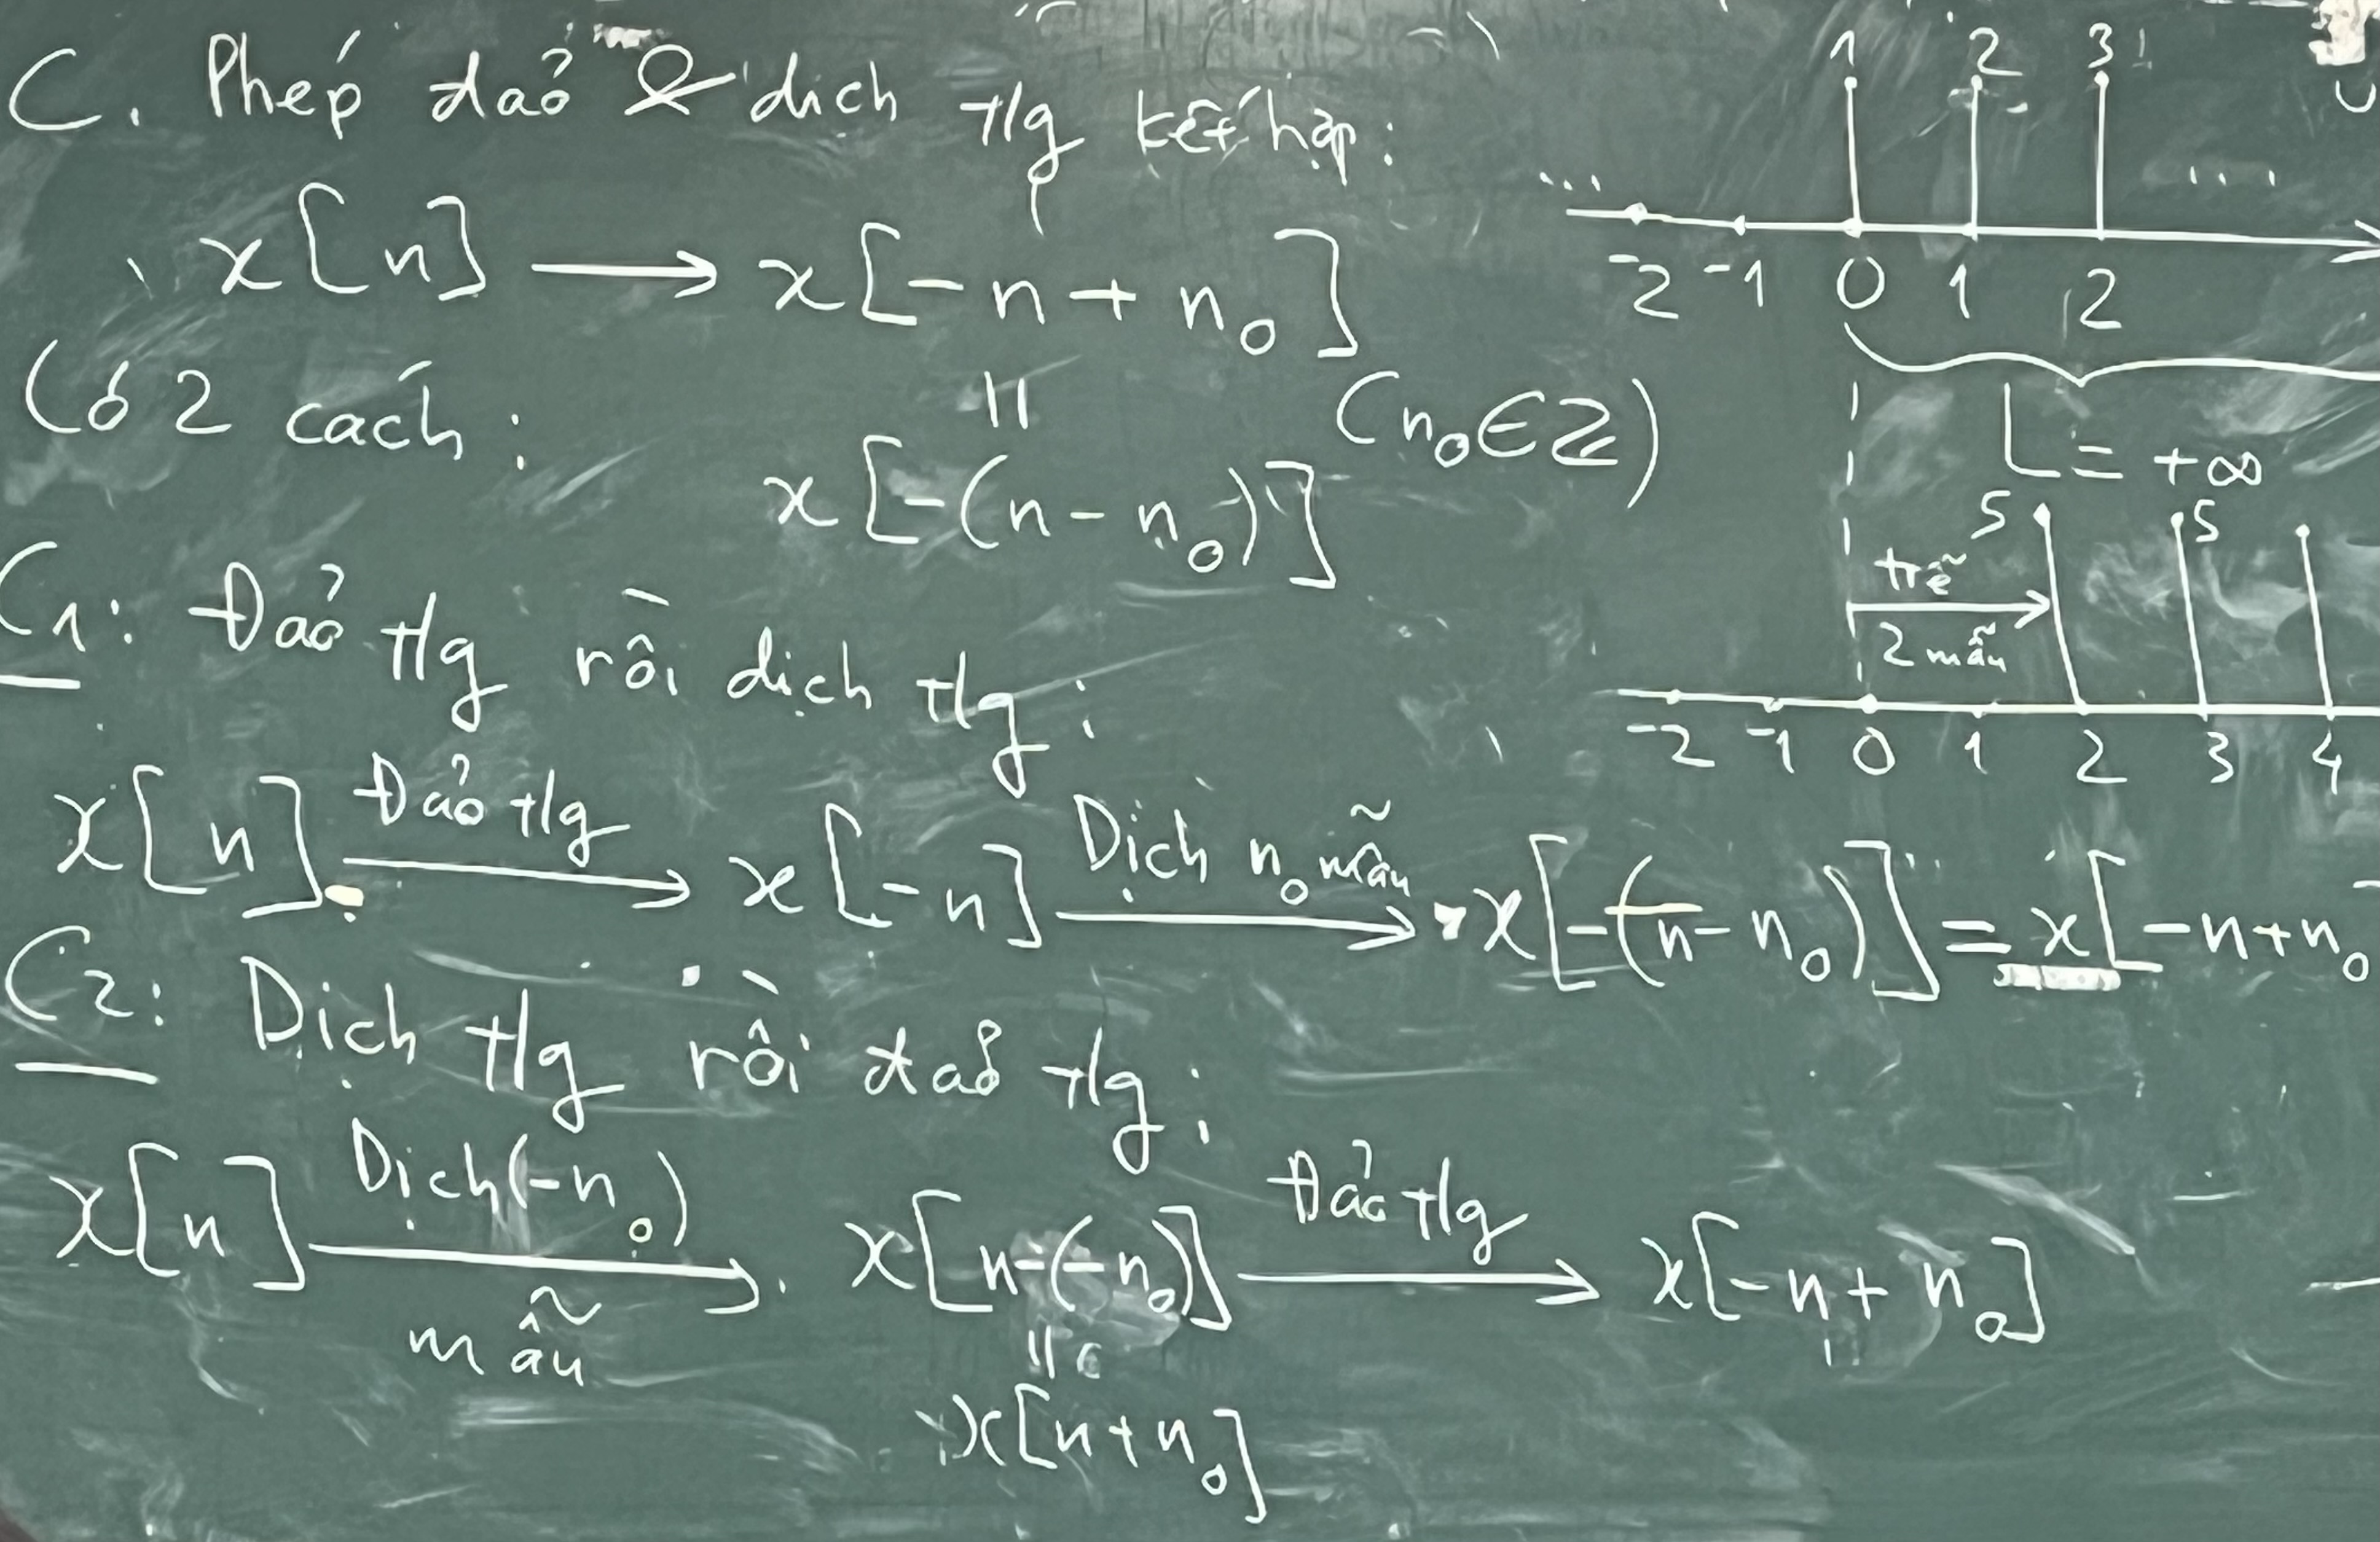 C. Phép đảo & dịch t/g kết hợp:
x[n] ⟶ x[-n + n₀]
Có 2 cách:
=
(n₀ ∈ Z)
x[-(n - n₀)]
C1: Đảo t/g rồi dịch t/g:
x[n] Đảo t/g ⟶ x[-n] Dịch n₀ mẫu ⟶ x[-(n - n₀)] = x[-n + n₀
C2: Dịch t/g rồi đảo t/g:
x[n] Dịch (-n₀) mẫu ⟶ x[n-(-n₀)] Đảo t/g ⟶ x[-n + n₀]
=
x[n + n₀]
1 2 3
... ...
-2 -1 0 1 2
L = +∞
5 5
trễ
2 mẫu
-2 -1 0 1 2 3 4